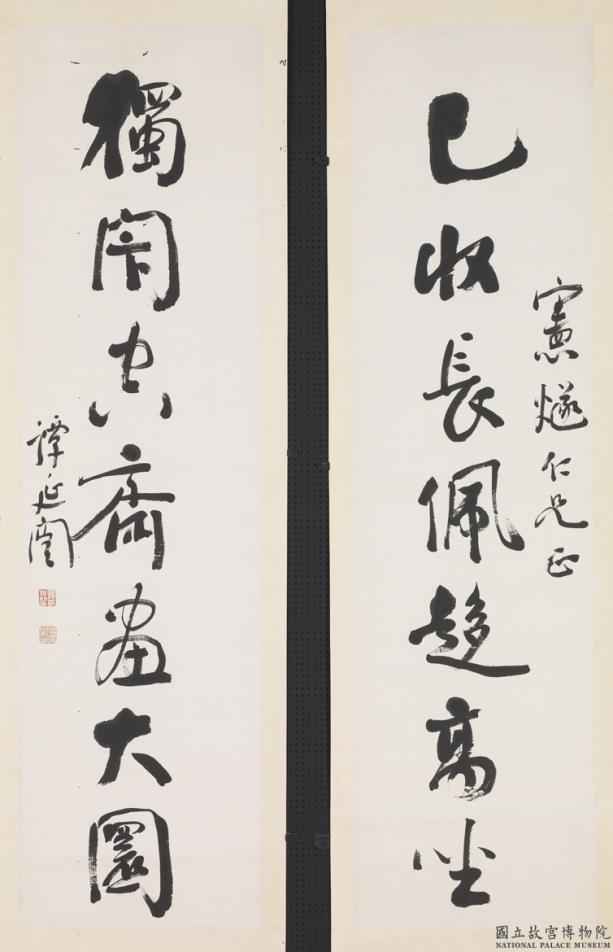 憲燧仁兄正
已收長佩趍高坐
獨閉空齋畫大圜
譚延闓
國立故宮博物院
NATIONAL PALACE MUSEUM